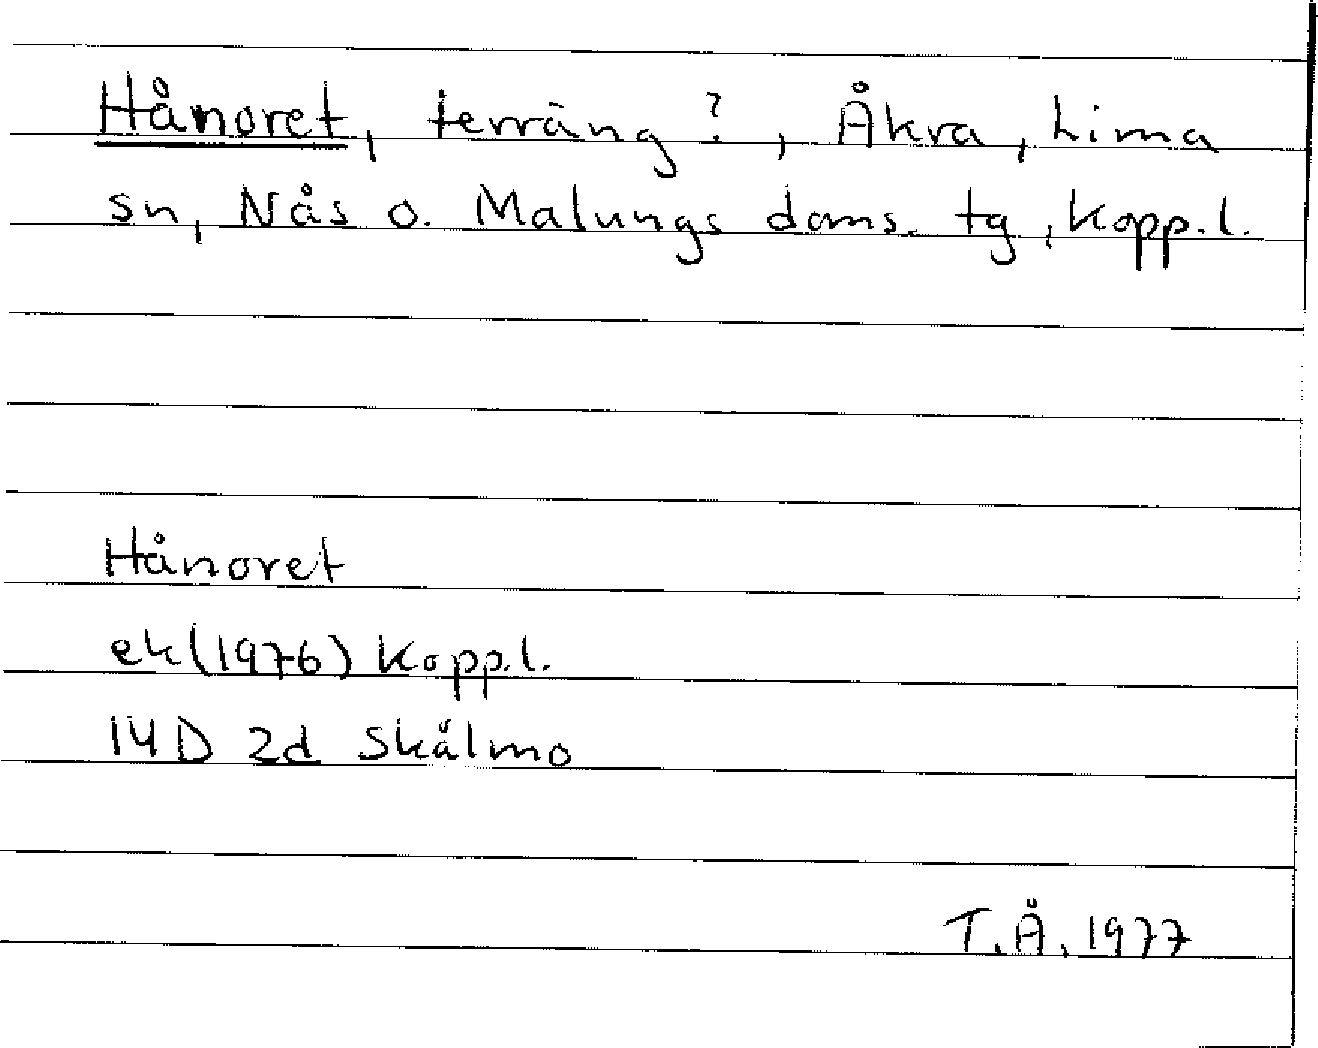 Hånoret, terräng?, Åkra, Lima
sn, Nås o. Malungs doms. tg, Kopp.l.
Hånoret
ek (1976) Kopp.l.
14D 2d Skålmo
T.Å. 1977